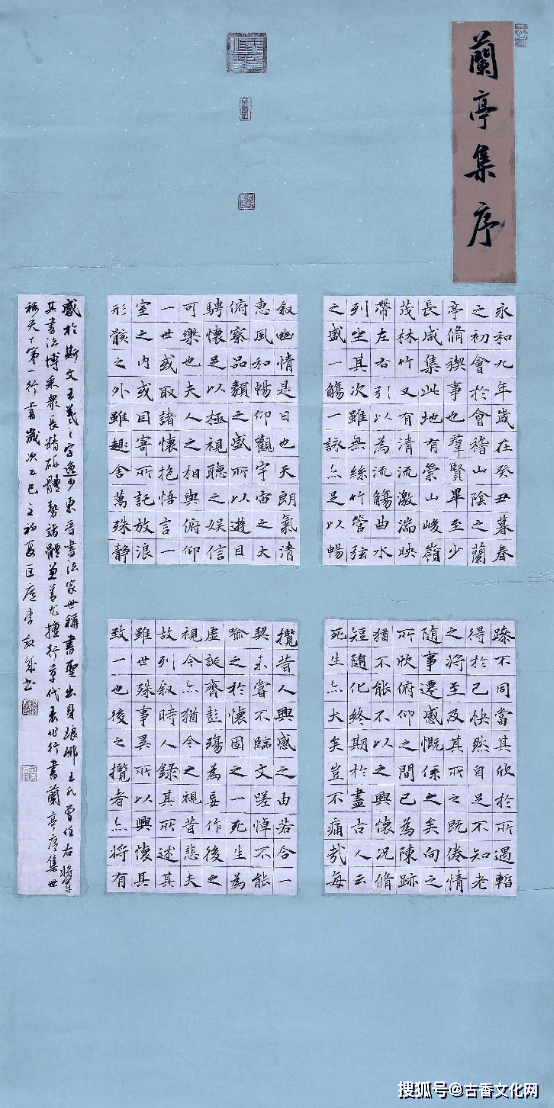 蘭亭集序
永和九年歲在癸丑暮春
之初會於會稽山陰之蘭
亭脩禊事也羣賢畢至少
長咸集此地有崇山峻嶺
茂林竹又有清流激湍映
帶左右引以為流觴曲水
列坐其次雖無絲竹管弦
之盛一觴一詠亦足以暢
敘幽情是日也天朗氣清
惠風和暢仰觀宇宙之大
俯察品類之盛所以遊目
騁懷足以極視聽之娛信
可樂也夫人之相與俯仰
一世或取諸懷抱悟言一
室之內或因寄所託放浪
形骸之外雖趣舍萬殊靜
躁不同當其欣於所遇蹔
得於己快然自足不知老
之將至及其所之既倦情
隨事遷感慨係之矣向之
所欣俯仰之間已為陳跡
猶不能不以之興懷況脩
短隨化終期於盡古人云
死生亦大矣豈不痛哉每
攬昔人興感之由若合一
契未嘗不臨文嗟悼不能
喻之於懷固之一死生為
虛誕齊彭殤為妄作後之
視今亦猶今之視昔悲夫
故列叙時人錄其所述其
雖世殊事異所以興懷其
致一也後之攬者亦將有
感於斯文王羲之字逸少東晉書法家世稱書聖出身琅琊王氏曾任右將軍
其書法博采眾長精研體勢諸體兼善尤擅行草代表作行書蘭亭序集世
稱天下第一行書歲次乙巳之初夏匡廬李書
搜狐号@古香文化网